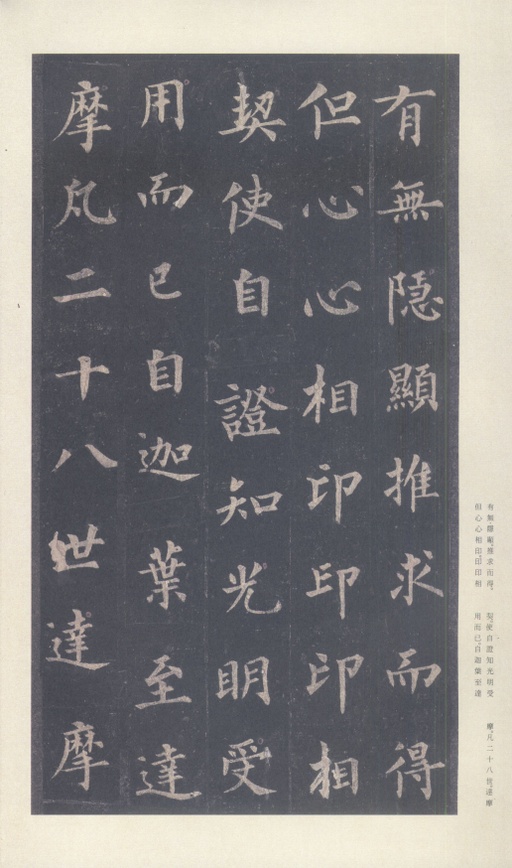 有無隱顯推求而得
但心心相印印印相
契使自證知光明受
用而已自迦葉至達
摩凡二十八世達摩
有無隱顯。推求而得。
但心心相印。印印相
契。使自證知光明受
用而已。自迦葉至達
摩。凡二十八世。達摩